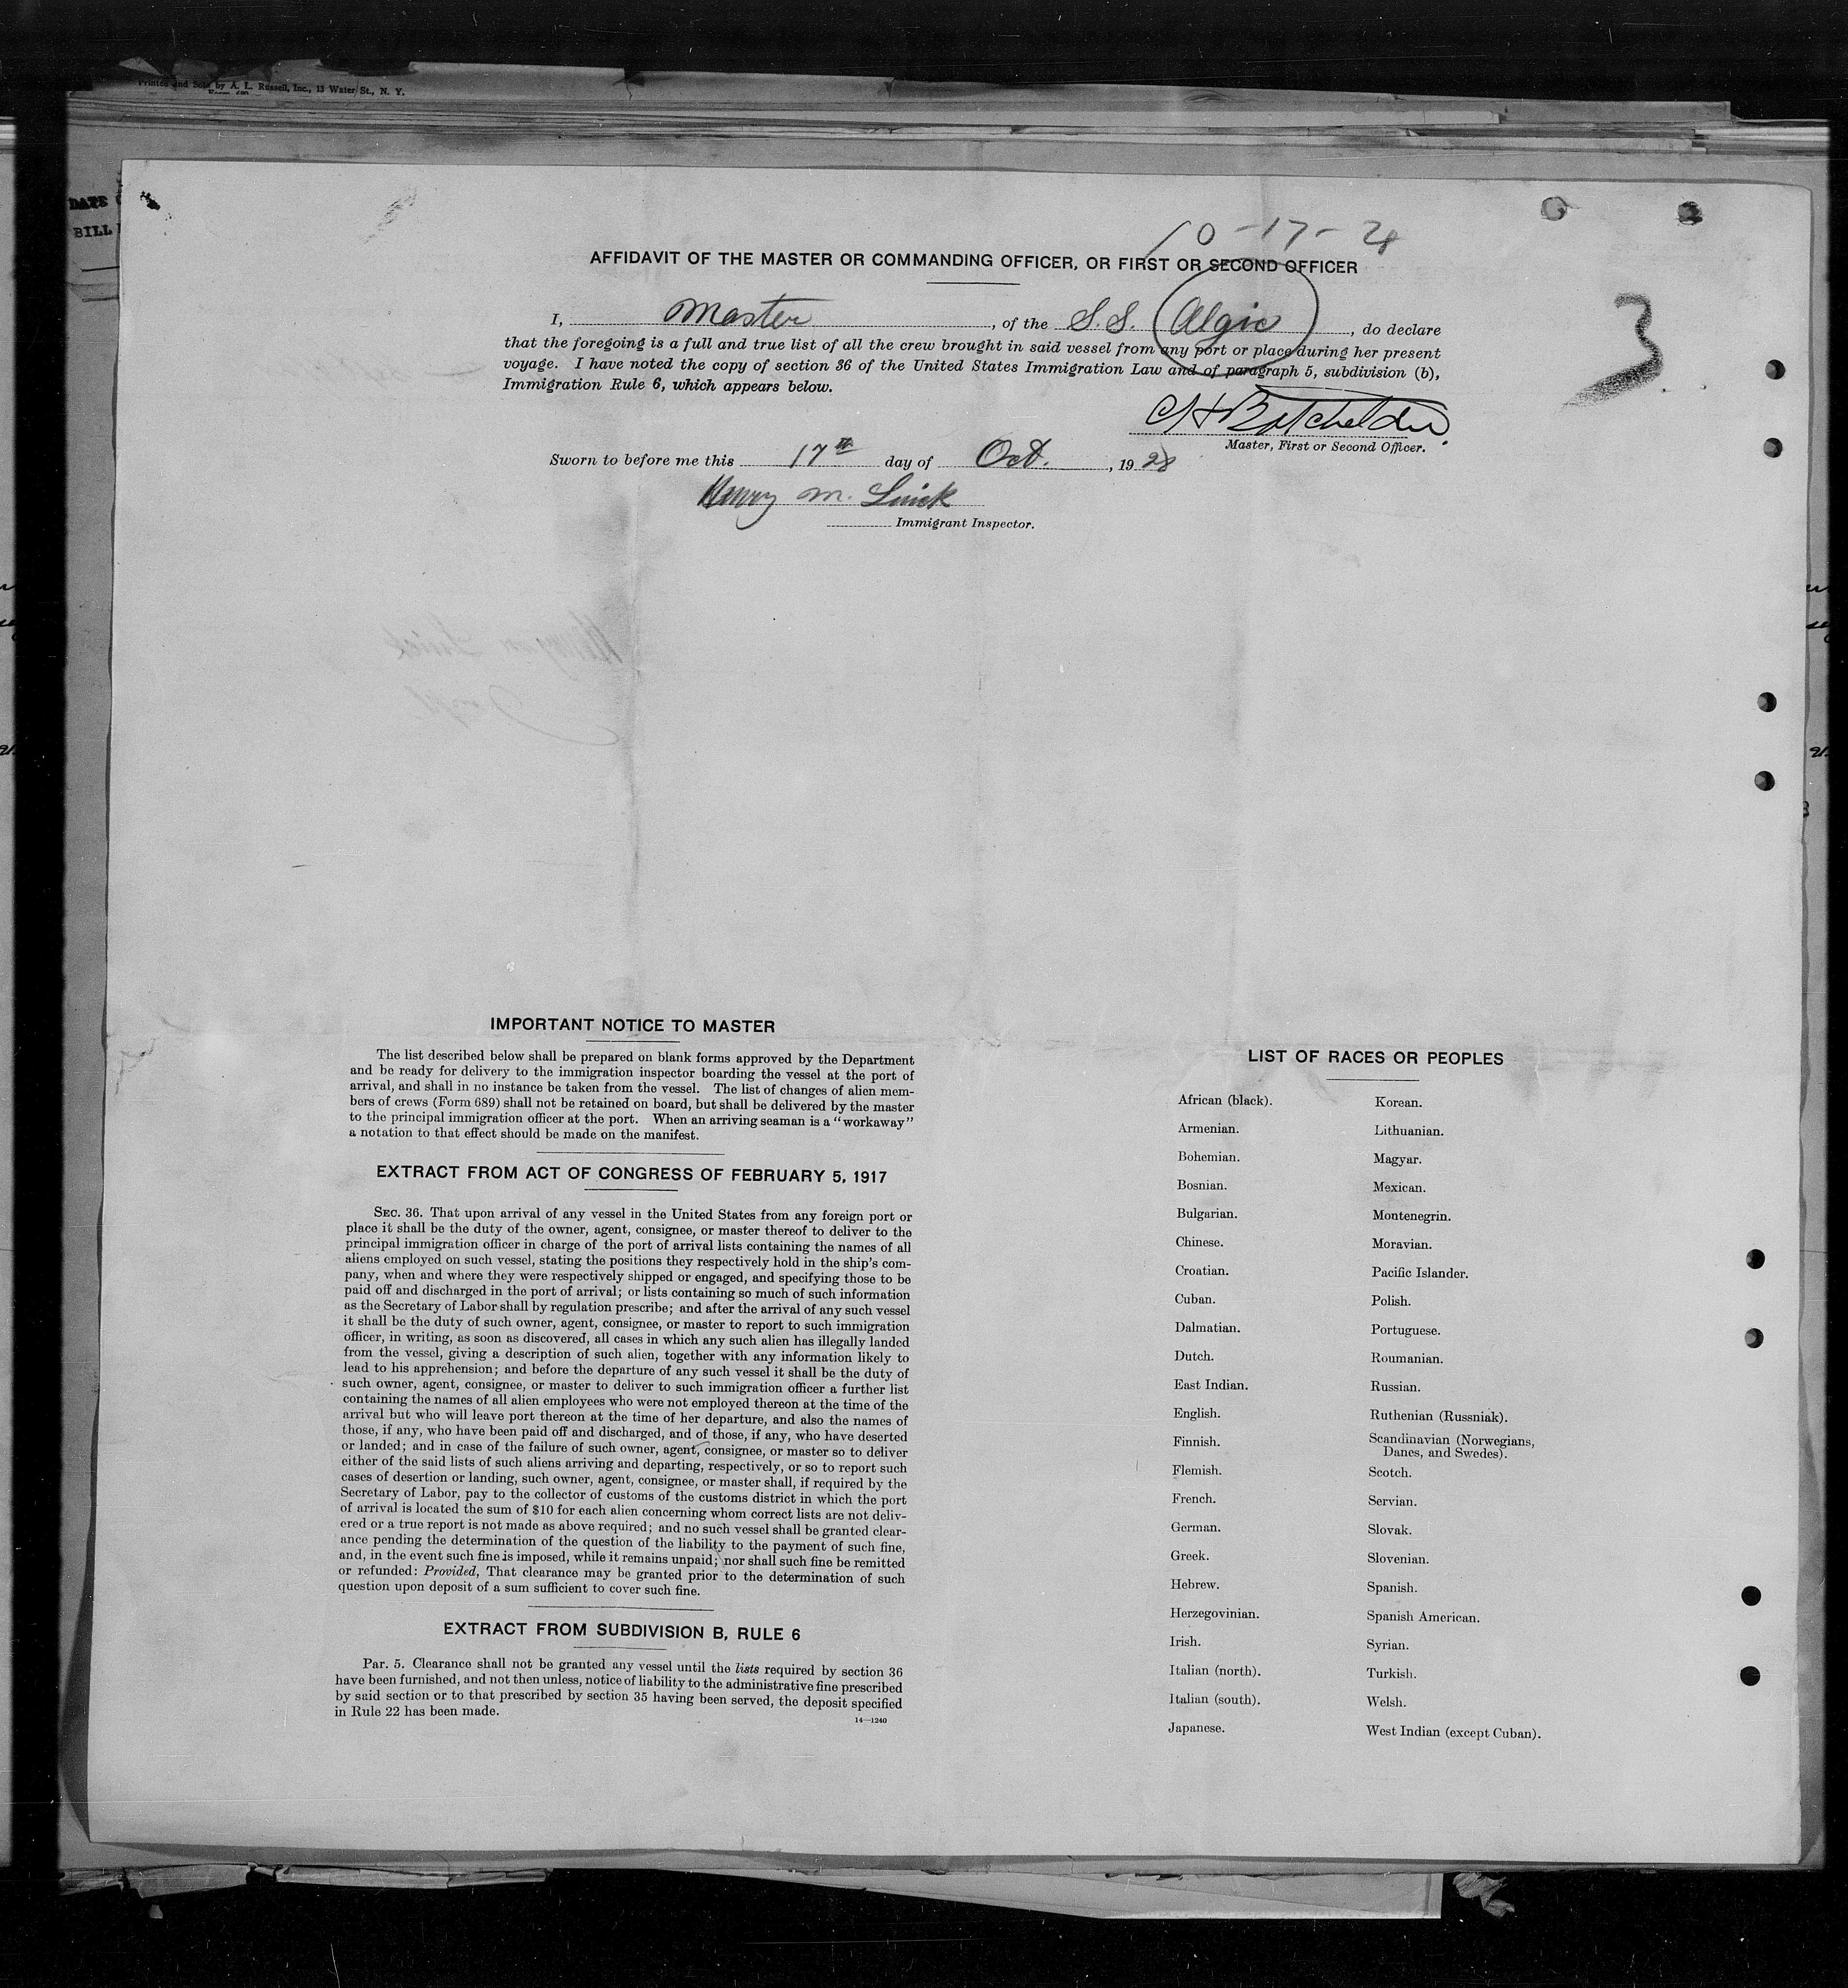 Printed and Sold by A. L. Russell, Inc., 13 Water St., N. Y.
DATE
BILL
10-17-28
AFFIDAVIT OF THE MASTER OR COMMANDING OFFICER, OR FIRST OR SECOND OFFICER
I, Master, of the S.S. Algic, do declare
that the foregoing is a full and true list of all the crew brought in said vessel from any port or place during her present
voyage. I have noted the copy of section 36 of the United States Immigration Law and of paragraph 5, subdivision (b),
Immigration Rule 6, which appears below.
3
Batchelder
Master, First or Second Officer.
Sworn to before me this 17th day of Oct., 1928
Henry M.
Immigrant Inspector.
IMPORTANT NOTICE TO MASTER
The list described below shall be prepared on blank forms approved by the Department
and be ready for delivery to the immigration inspector boarding the vessel at the port of
arrival, and shall in no instance be taken from the vessel. The list of changes of alien mem-
bers of crews (Form 689) shall not be retained on board, but shall be delivered by the master
to the principal immigration officer at the port. When an arriving seaman is a "workaway"
a notation to that effect should be made on the manifest.
EXTRACT FROM ACT OF CONGRESS OF FEBRUARY 5, 1917
SEC. 36. That upon arrival of any vessel in the United States from any foreign port or
place it shall be the duty of the owner, agent, consignee, or master thereof to deliver to the
principal immigration officer in charge of the port of arrival lists containing the names of all
aliens employed on such vessel, stating the positions they respectively hold in the ship's com-
pany, when and where they were respectively shipped or engaged, and specifying those to be
paid off and discharged in the port of arrival; or lists containing so much of such information
as the Secretary of Labor shall by regulation prescribe; and after the arrival of any such vessel
it shall be the duty of such owner, agent, consignee, or master to report to such immigration
officer, in writing, as soon as discovered, all cases in which any such alien has illegally landed
from the vessel, giving a description of such alien, together with any information likely to
lead to his apprehension; and before the departure of any such vessel it shall be the duty of
such owner, agent, consignee, or master to deliver to such immigration officer a further list
containing the names of all alien employees who were not employed thereon at the time of the
arrival but who will leave port thereon at the time of her departure, and also the names of
those, if any, who have been paid off and discharged, and of those, if any, who have deserted
or landed; and in case of the failure of such owner, agent, consignee, or master so to deliver
either of the said lists of such aliens arriving and departing, respectively, or so to report such
cases of desertion or landing, such owner, agent, consignee, or master shall, if required by the
Secretary of Labor, pay to the collector of customs of the customs district in which the port
of arrival is located the sum of $10 for each alien concerning whom correct lists are not deliv-
ered or a true report is not made as above required; and no such vessel shall be granted clear-
ance pending the determination of the question of the liability to the payment of such fine,
and, in the event such fine is imposed, while it remains unpaid; nor shall such fine be remitted
or refunded: Provided, That clearance may be granted prior to the determination of such
question upon deposit of a sum sufficient to cover such fine.
EXTRACT FROM SUBDIVISION B, RULE 6
Par. 5. Clearance shall not be granted any vessel until the lists required by section 36
have been furnished, and not then unless, notice of liability to the administrative fine prescribed
by said section or to that prescribed by section 35 having been served, the deposit specified
in Rule 22 has been made.
14—1240
LIST OF RACES OR PEOPLES
African (black).
Armenian.
Bohemian.
Bosnian.
Bulgarian.
Chinese.
Croatian.
Cuban.
Dalmatian.
Dutch.
East Indian.
English.
Finnish.
Flemish.
French.
German.
Greek.
Hebrew.
Herzegovinian.
Irish.
Italian (north).
Italian (south).
Japanese.
Korean.
Lithuanian.
Magyar.
Mexican.
Montenegrin.
Moravian.
Pacific Islander.
Polish.
Portuguese.
Roumanian.
Russian.
Ruthenian (Russniak).
Scandinavian (Norwegians,
Danes, and Swedes).
Scotch.
Servian.
Slovak.
Slovenian.
Spanish.
Spanish American.
Syrian.
Turkish.
Welsh.
West Indian (except Cuban).